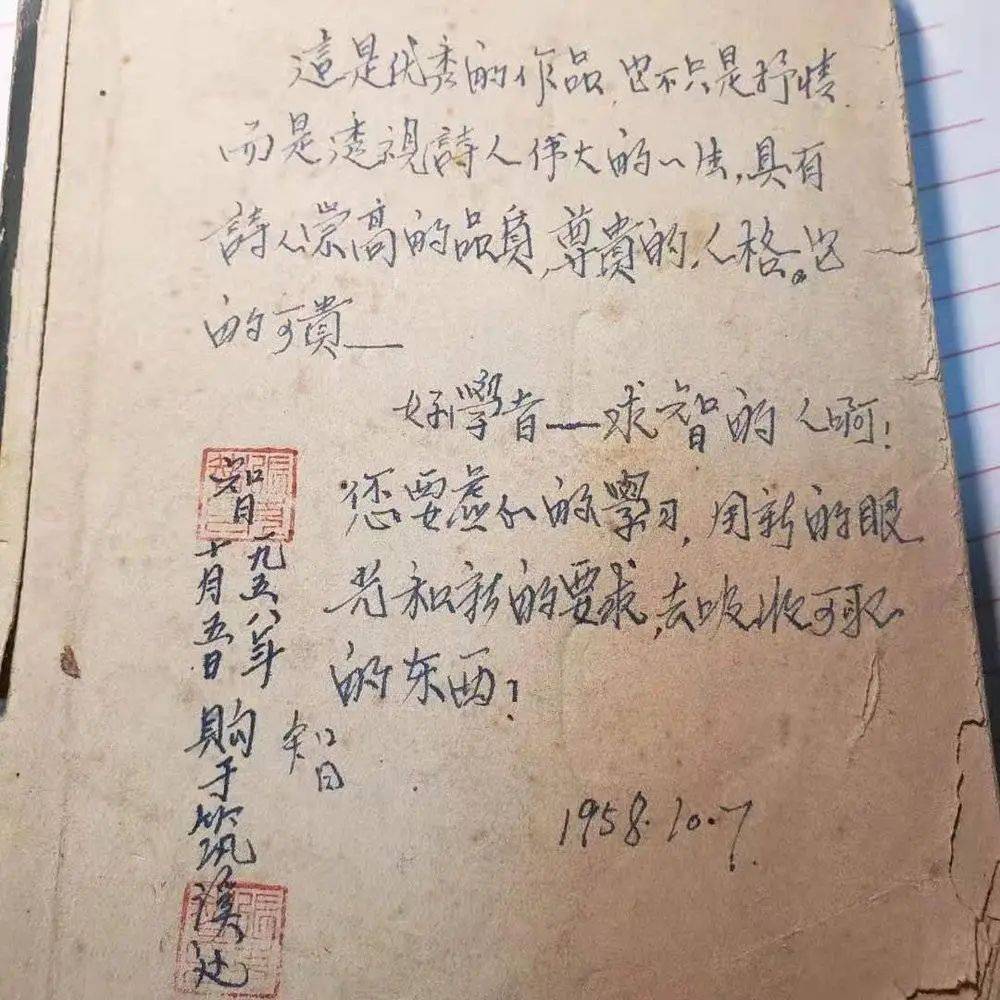 這是优秀的作品,它不只是抒情
而是透視詩人伟大的一生,具有
詩人崇高的品質,尊貴的人格。它
的可貴——
好學者——求智的人啊!
您要虚心的學习,用新的眼
光和新的要求,去吸收可取
的东西!
智
1958.10.7.
智
一九五八年
十月五日
購于筑溪